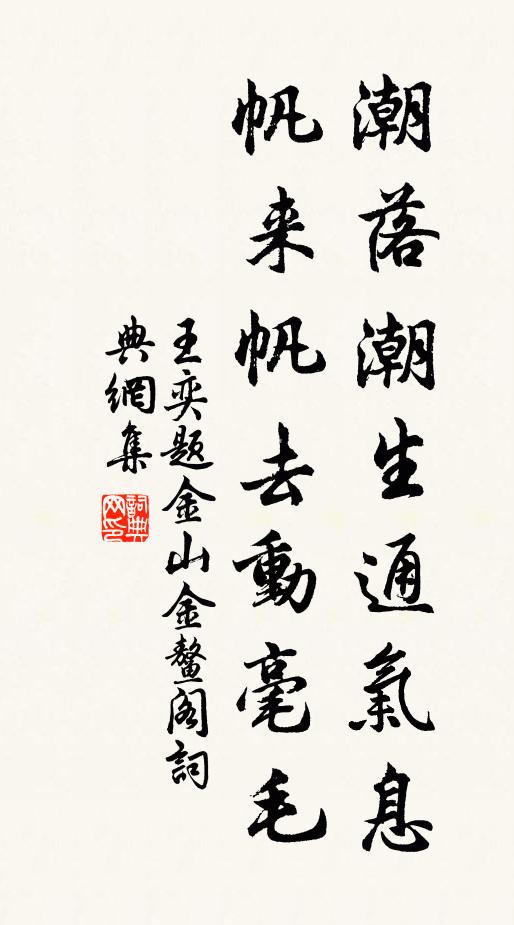 潮落潮生通氣息
帆来帆去動毫毛
王奕題金山金鰲阁詞
典網集
詞典网印